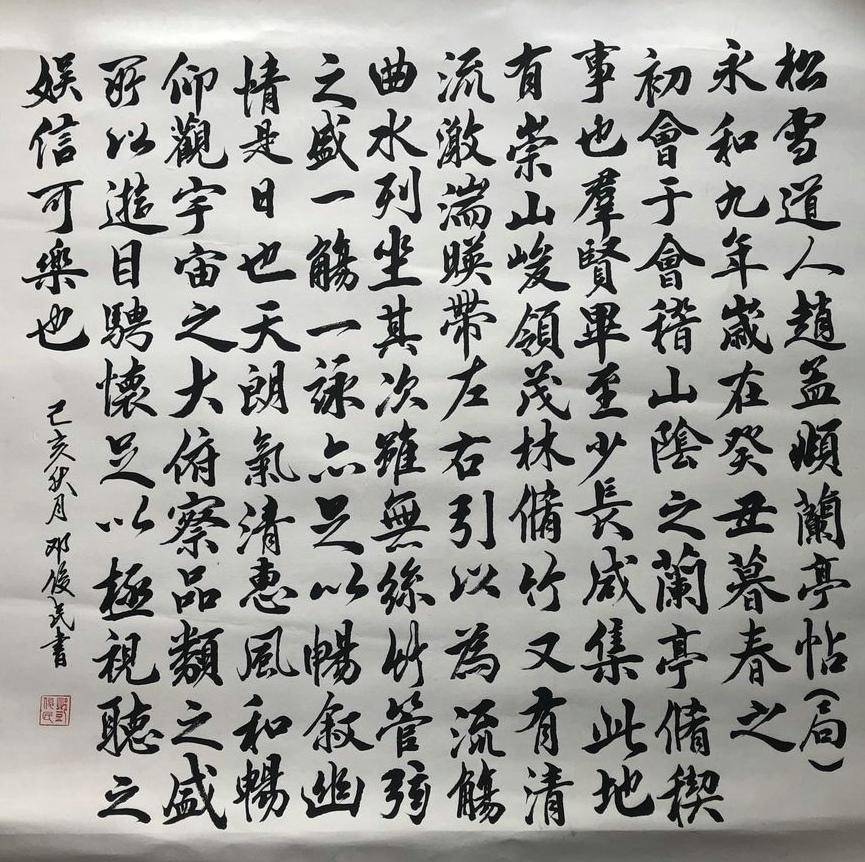 松雪道人趙孟頫蘭亭帖（局）
永和九年歲在癸丑暮春之
初會于會稽山陰之蘭亭脩禊
事也羣賢畢至少長咸集此地
有崇山峻領茂林脩竹又有清
流激湍暎帶左右引以為流觴
曲水列坐其次雖無絲竹管弦
之盛一觴一詠亦足以暢叙幽
情是日也天朗氣清惠風和暢
仰觀宇宙之大俯察品類之盛
所以遊目騁懷足以極視聽之
娛信可樂也
己亥伏月 邓俊民書